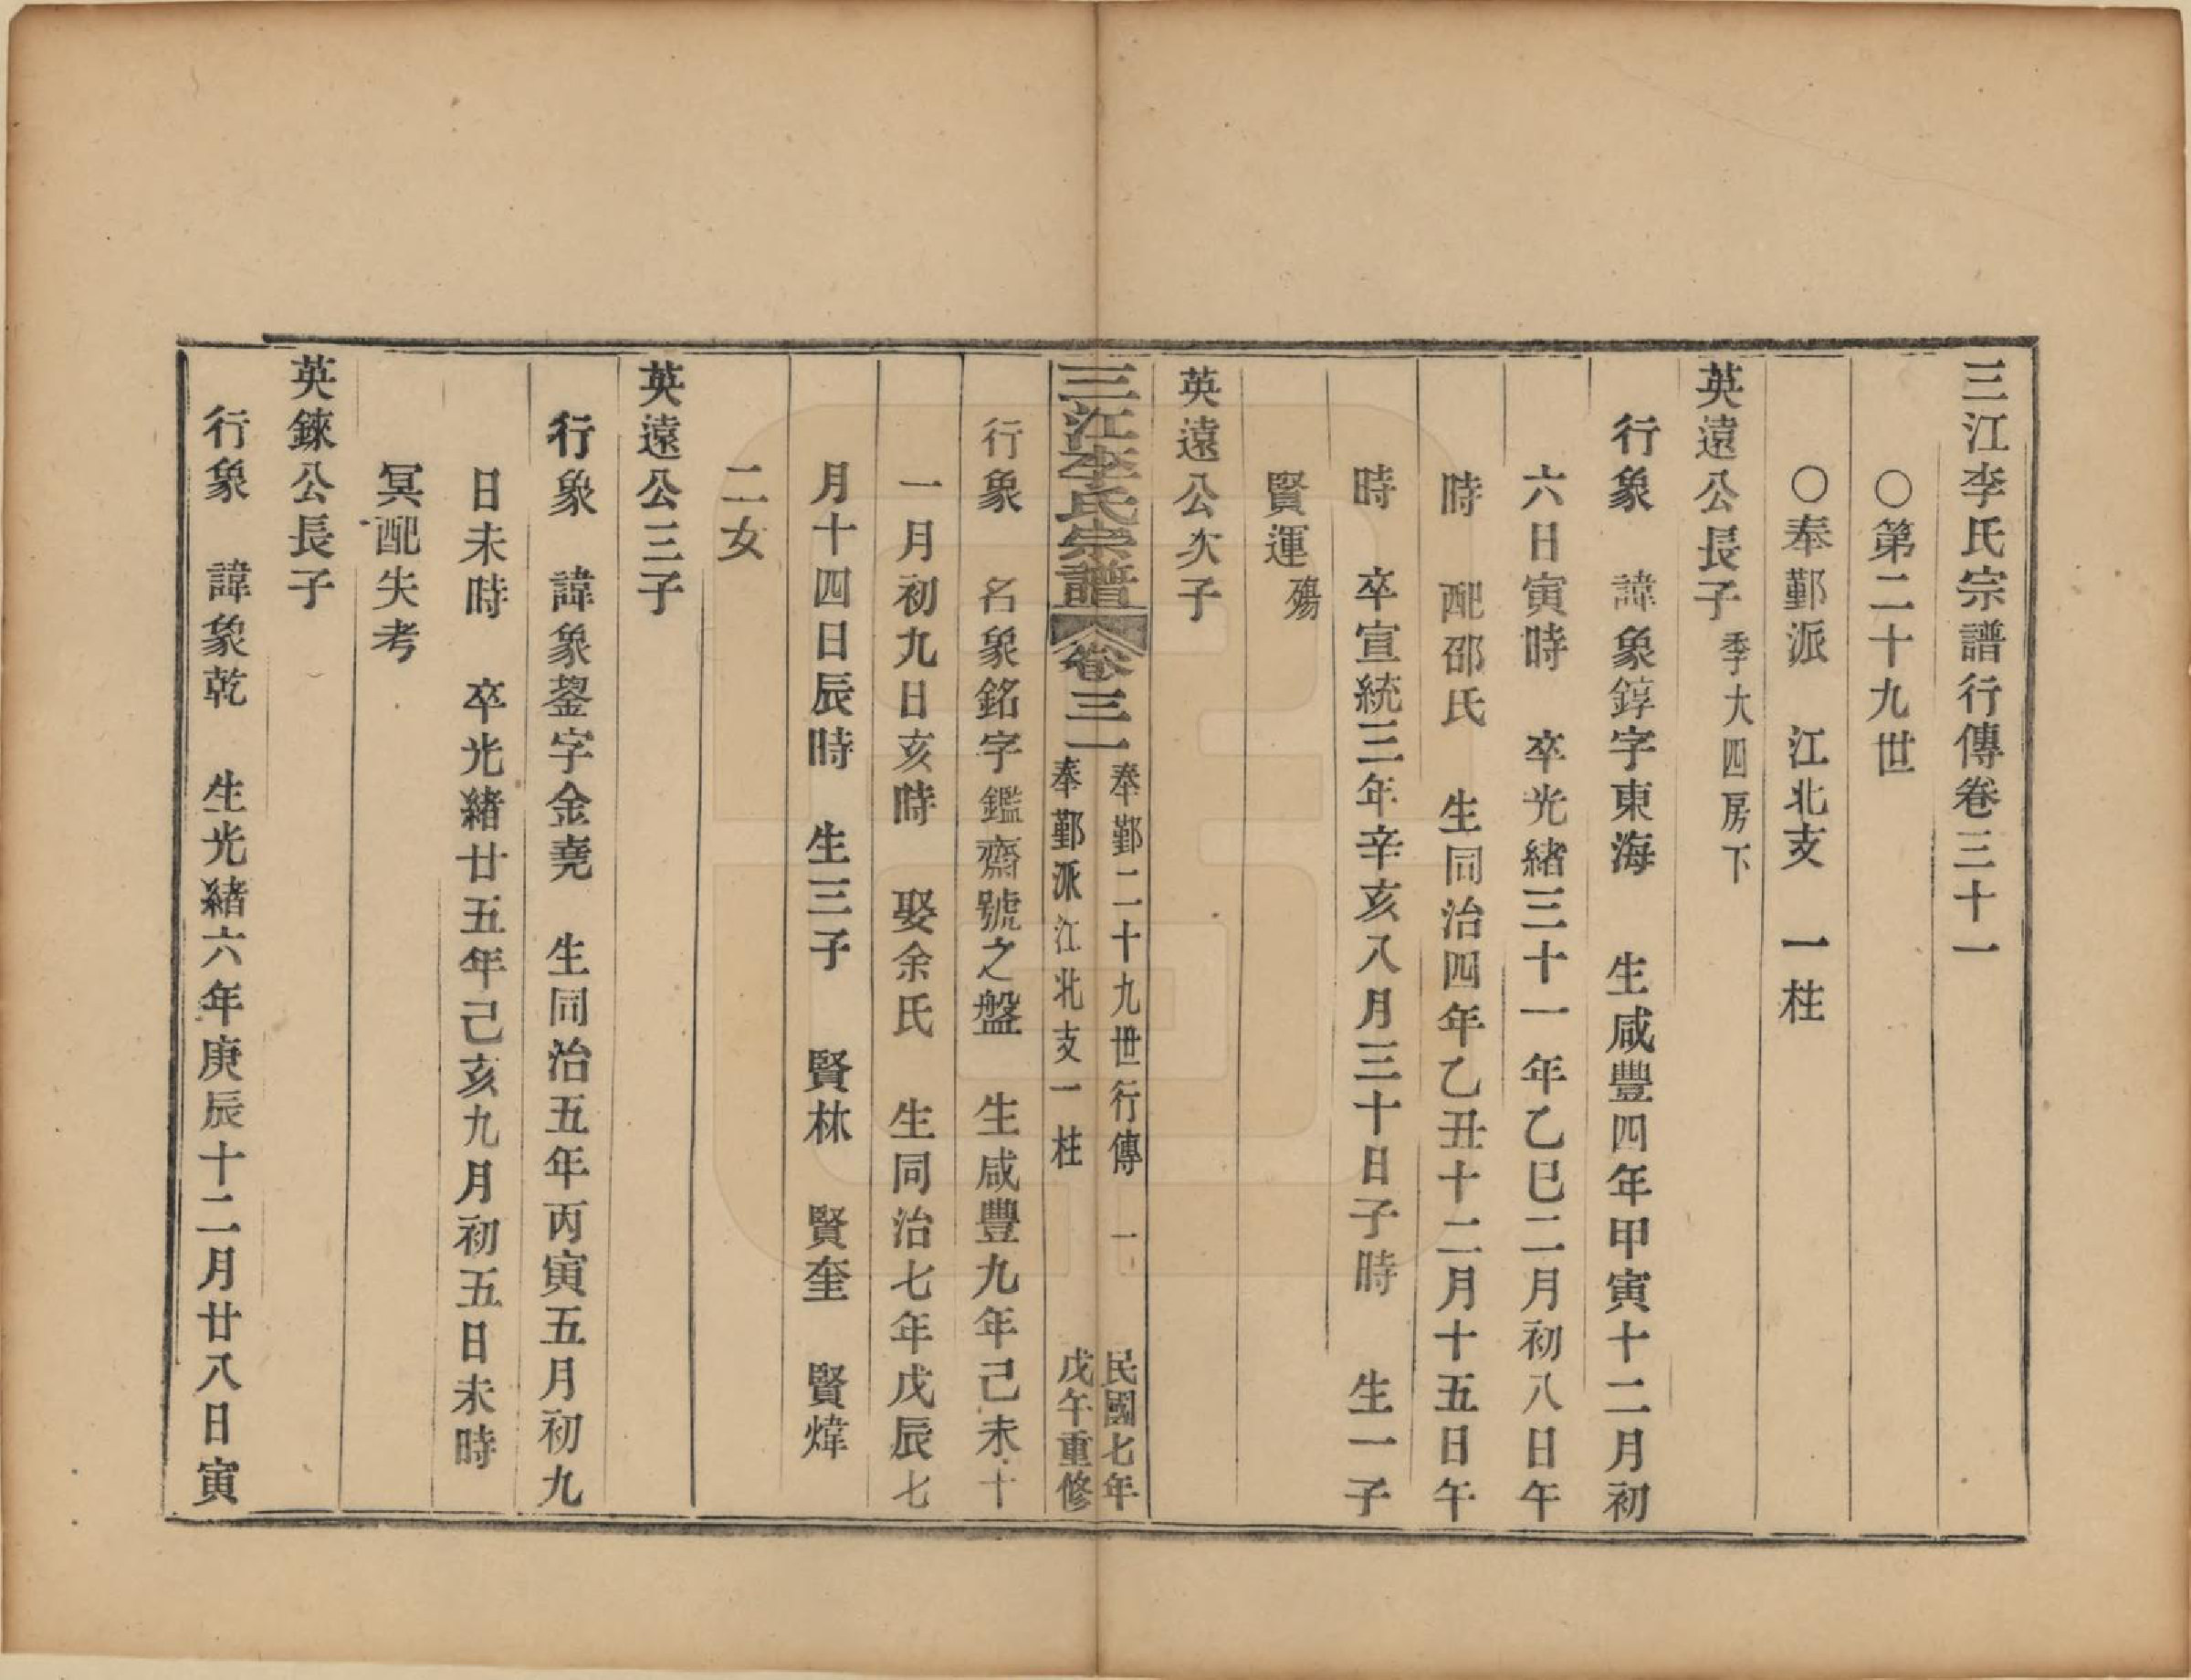 三江李氏宗譜行傳卷三十一
○第二十九世
○奉鄞派　江北支　一柱
英遠公長子季大四房下
行象　諱象錞字東海　生咸豐四年甲寅十二月初
六日寅時　卒光緒三十一年乙巳二月初八日午
時　配邵氏　生同治四年乙丑十二月十五日午
時　卒宣統三年辛亥八月三十日子時　生一子
賢運殤
英遠公次子
三江李氏宗譜
卷三一
奉鄞二十九世行傳　一
奉鄞派江北支一柱
民國七年
戊午重修
行象　名象銘字鑑齋號之盤　生咸豐九年己未十
一月初九日亥時　娶余氏　生同治七年戊辰七
月十四日辰時　生三子　賢林　賢奎　賢煒
二女
英遠公三子
行象　諱象鋆字金堯　生同治五年丙寅五月初九
日未時　卒光緒廿五年己亥九月初五日未時
冥配失考
英錸公長子
行象　諱象乾　生光緒六年庚辰十二月廿八日寅